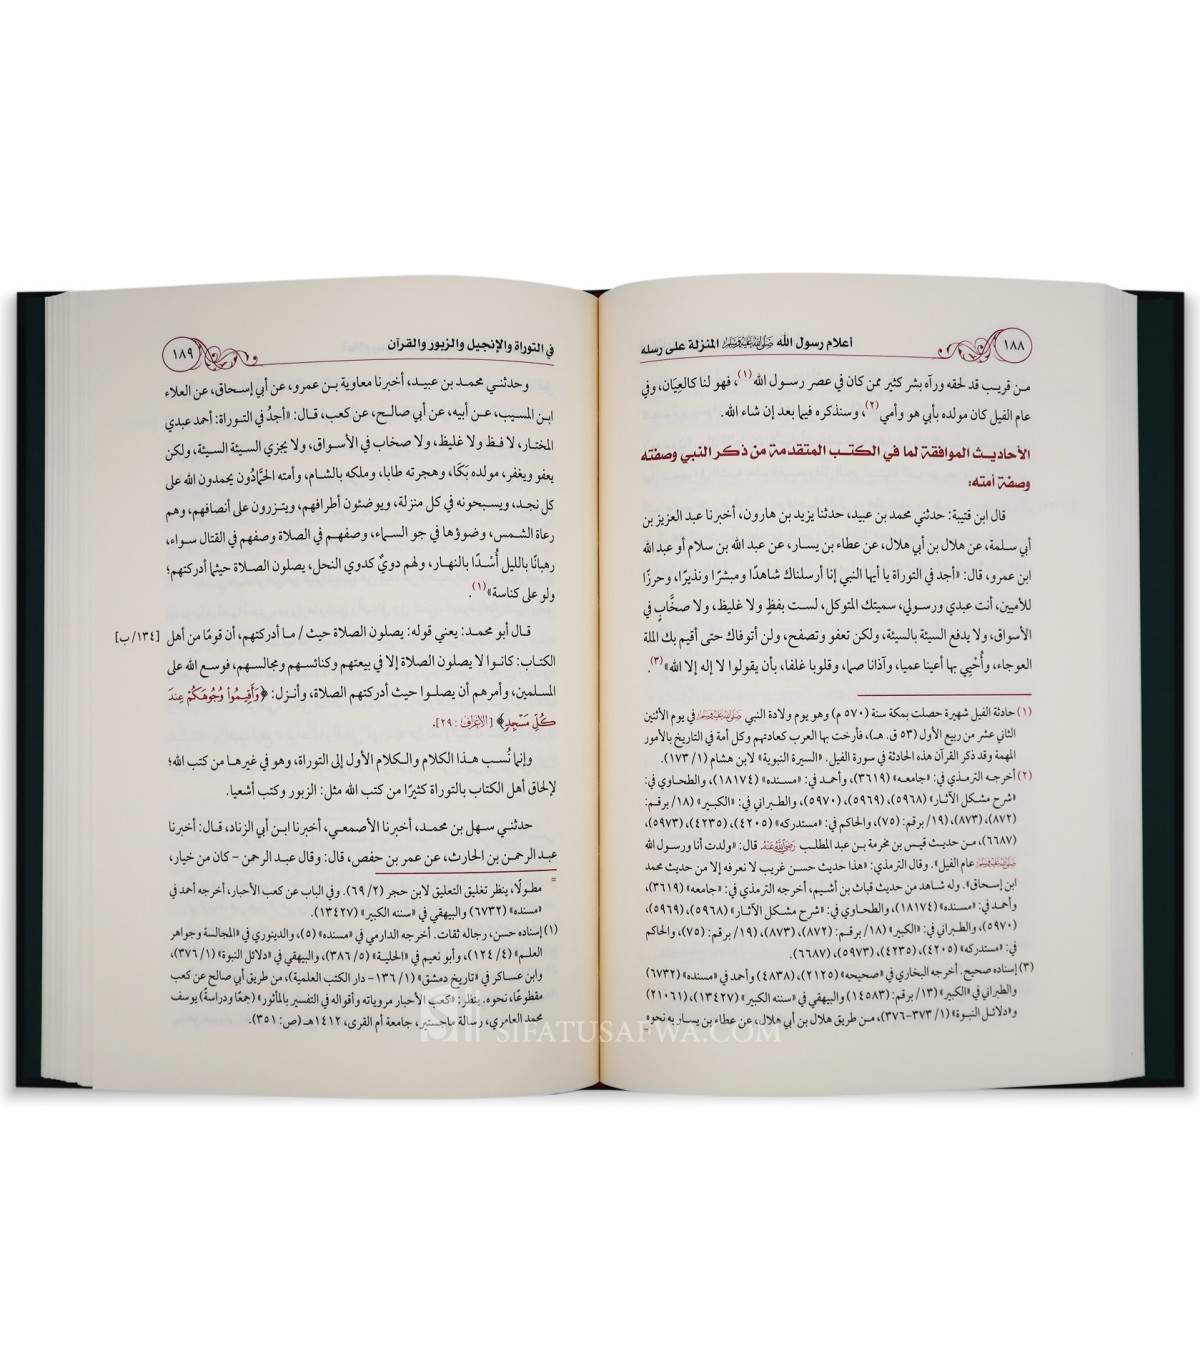 ١٨٨
أعلام رسول الله ﷺ المنزلة على رسله
من قريب قد لحقه ورآه بشر كثير ممن كان في عصر رسول الله(١)، فهو لنا كالعِيَان، وفي
عام الفيل كان مولده بأبي هو وأمي(٢)، وسنذكره فيما بعد إن شاء الله.
الأحاديث الموافقة لما في الكتب المتقدمة من ذكر النبي وصفته
وصفة أمته:
قال ابن قتيبة: حدثني محمد بن عبيد، حدثنا يزيد بن هارون، أخبرنا عبد العزيز بن
أبي سلمة، عن هلال بن أبي هلال، عن عطاء بن يسار، عن عبد الله بن سلام أو عبد الله
ابن عمرو، قال: «أجد في التوراة يا أيها النبي إنا أرسلناك شاهدًا ومبشرًا ونذيرًا، وحرزًا
للأميين، أنت عبدي ورسولي، سميتك المتوكل، لست بفظٍ ولا غليظ، ولا صخَّابٍ في
الأسواق، ولا يدفع السيئة بالسيئة، ولكن تعفو وتصفح، ولن أتوفاك حتى أقيم بك الملة
العوجاء، وأُحْيِي بها أعينا عميا، وآذانا صما، وقلوبا غلفا، بأن يقولوا لا إله إلا الله»(٣).
(١) حادثة الفيل شهيرة حصلت بمكة سنة (٥٧٠ م) وهو يوم ولادة النبي ﷺ في يوم الأثنين
الثاني عشر من ربيع الأول (٥٣ ق. هـ)، فأرخت بها العرب كعادتهم وكل أمة في التاريخ بالأمور
المهمة وقد ذكر القرآن هذه الحادثة في سورة الفيل. «السيرة النبوية» لابن هشام (١/ ١٧٣).
(٢) أخرجه الترمذي في: «جامعه» (٣٦١٩)، وأحمد في: «مسنده» (١٨١٧٤)، والطحاوي في:
«شرح مشكل الآثار» (٥٩٦٨)، (٥٩٦٩)، (٥٩٧٠)، والطبراني في: «الكبير» (١٨/ برقم:
(٨٧٢)، (٨٧٣)، (١٩/ برقم: (٧٥)، والحاكم في: «مستدركه» (٤٢٠٥)، (٤٢٣٥)، (٥٩٧٣)،
(٦٦٨٧)، من حديث قيس بن مخرمة بن عبد المطلب رضي الله عنه قال: «ولدت أنا ورسول الله
ﷺ عام الفيل». وقال الترمذي: «هذا حديث حسن غريب لا نعرفه إلا من حديث محمد
ابن إسحاق». وله شاهد من حديث قباث بن أشيم، أخرجه الترمذي في: «جامعه» (٣٦١٩)،
وأحمد في: «مسنده» (١٨١٧٤)، والطحاوي في: «شرح مشكل الآثار» (٥٩٦٨)، (٥٩٦٩)،
(٥٩٧٠)، والطبراني في: «الكبير» (١٨/ برقم: (٨٧٢)، (٨٧٣)، (١٩/ برقم: (٧٥)، والحاكم
في: «مستدركه» (٤٢٠٥)، (٤٢٣٥)، (٥٩٧٣)، (٦٦٨٧).
(٣) إسناده صحيح. أخرجه البخاري في «صحيحه» (٢١٢٥)، (٤٨٣٨)، وأحمد في «مسنده» (٦٧٣٢)
والطبراني في «الكبير» (١٣/ برقم: (١٤٥٨٣) والبيهقي في «سننه الكبير» (١٣٤٢٧)، (٢١٠٦١)
و«دلائل النبوة» (١/ ٣٧٣-٣٧٦)، من طريق هلال بن أبي هلال، عن عطاء بن يسار به نحوه
في التوراة والإنجيل والزبور والقرآن
١٨٩
وحدثني محمد بن عبيد، أخبرنا معاوية بن عمرو، عن أبي إسحاق، عن العلاء
ابن المسيب، عن أبيه، عن أبي صالح، عن كعب، قال: «أجدُ في التوراة: أحمد عبدي
المختار، لا فظ ولا غليظ، ولا صخاب في الأسواق، ولا يجزي السيئة السيئة، ولكن
يعفو ويغفر، مولده بَكَا، وهجرته طابا، وملكه بالشام، وأمته الحمَّادُون يحمدون الله على
كل نجد، ويسبحونه في كل منزلة، ويوضئون أطرافهم، ويتزرون على أنصافهم، وهم
رعاة الشمس، وضوؤها في جو السماء، وصفهم في الصلاة وصفهم في القتال سواء،
رهبانًا بالليل أُسْدًا بالنهار، ولهم دويٌ كدوي النحل، يصلون الصلاة حيثما أدركتهم؛
ولو على كناسة»(١).
قال أبو محمد: يعني قوله: يصلون الصلاة حيث/ ما أدركتهم، أن قومًا من أهل [١٣٤/ب]
الكتاب: كانوا لا يصلون الصلاة إلا في بيعتهم وكنائسهم ومجالسهم، فوسع الله على
المسلمين، وأمرهم أن يصلوا حيث أدركتهم الصلاة، وأنزل: ﴿وَأَقِيمُوا۟ وُجُوهَكُمْ عِندَ
كُلِّ مَسْجِدٍ﴾ [الأعراف: ٢٩].
وإنما نُسب هذا الكلام والكلام الأول إلى التوراة، وهو في غيرها من كتب الله؛
لإلحاق أهل الكتاب بالتوراة كثيرًا من كتب الله مثل: الزبور وكتب أشعيا.
حدثني سهل بن محمد، أخبرنا الأصمعي، أخبرنا ابن أبي الزناد، قال: أخبرنا
عبد الرحمن بن الحارث، عن عمر بن حفص، قال: وقال عبد الرحمن - كان من خيار،
= مطولًا، ينظر تغليق التعليق لابن حجر (٢/ ٦٩). وفي الباب عن كعب الأحبار، أخرجه أحمد في
«مسنده» (٦٧٣٢) والبيهقي في «سننه الكبير» (١٣٤٢٧).
(١) إسناده حسن، رجاله ثقات. أخرجه الدارمي في «مسنده» (٥)، والدينوري في «المجالسة وجواهر
العلم» (٤/ ١٢٤)، وأبو نعيم في «الحلية» (٥/ ٣٨٦)، والبيهقي في «دلائل النبوة» (١/ ٣٧٦)،
وابن عساكر في «تاريخ دمشق» (١/ ١٣٦- دار الكتب العلمية)، من طريق أبي صالح عن كعب
مقطوعًا، نحوه. ينظر: «كعب الأحبار مروياته وأقواله في التفسير بالمأثور» (جمعًا ودراسةً) يوسف
محمد العامري، رسالة ماجستير، جامعة أم القرى، ١٤١٢هـ (ص: ٣٥١).
SIFATUSAFWA.COM